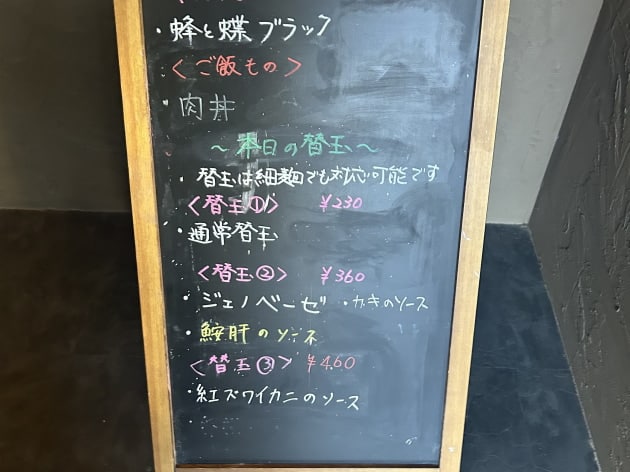 ・蜂と蝶ブラック
〈ご飯もの〉
・肉丼
～本日の替玉～
・替玉は細麺でも対応可能です
〈替玉①〉 ¥230
・通常替玉
〈替玉②〉 ¥360
・ジェノベーゼ ・カキのソース
・鮟肝のソース
〈替玉③〉 ¥460
・紅ズワイカニのソース
・